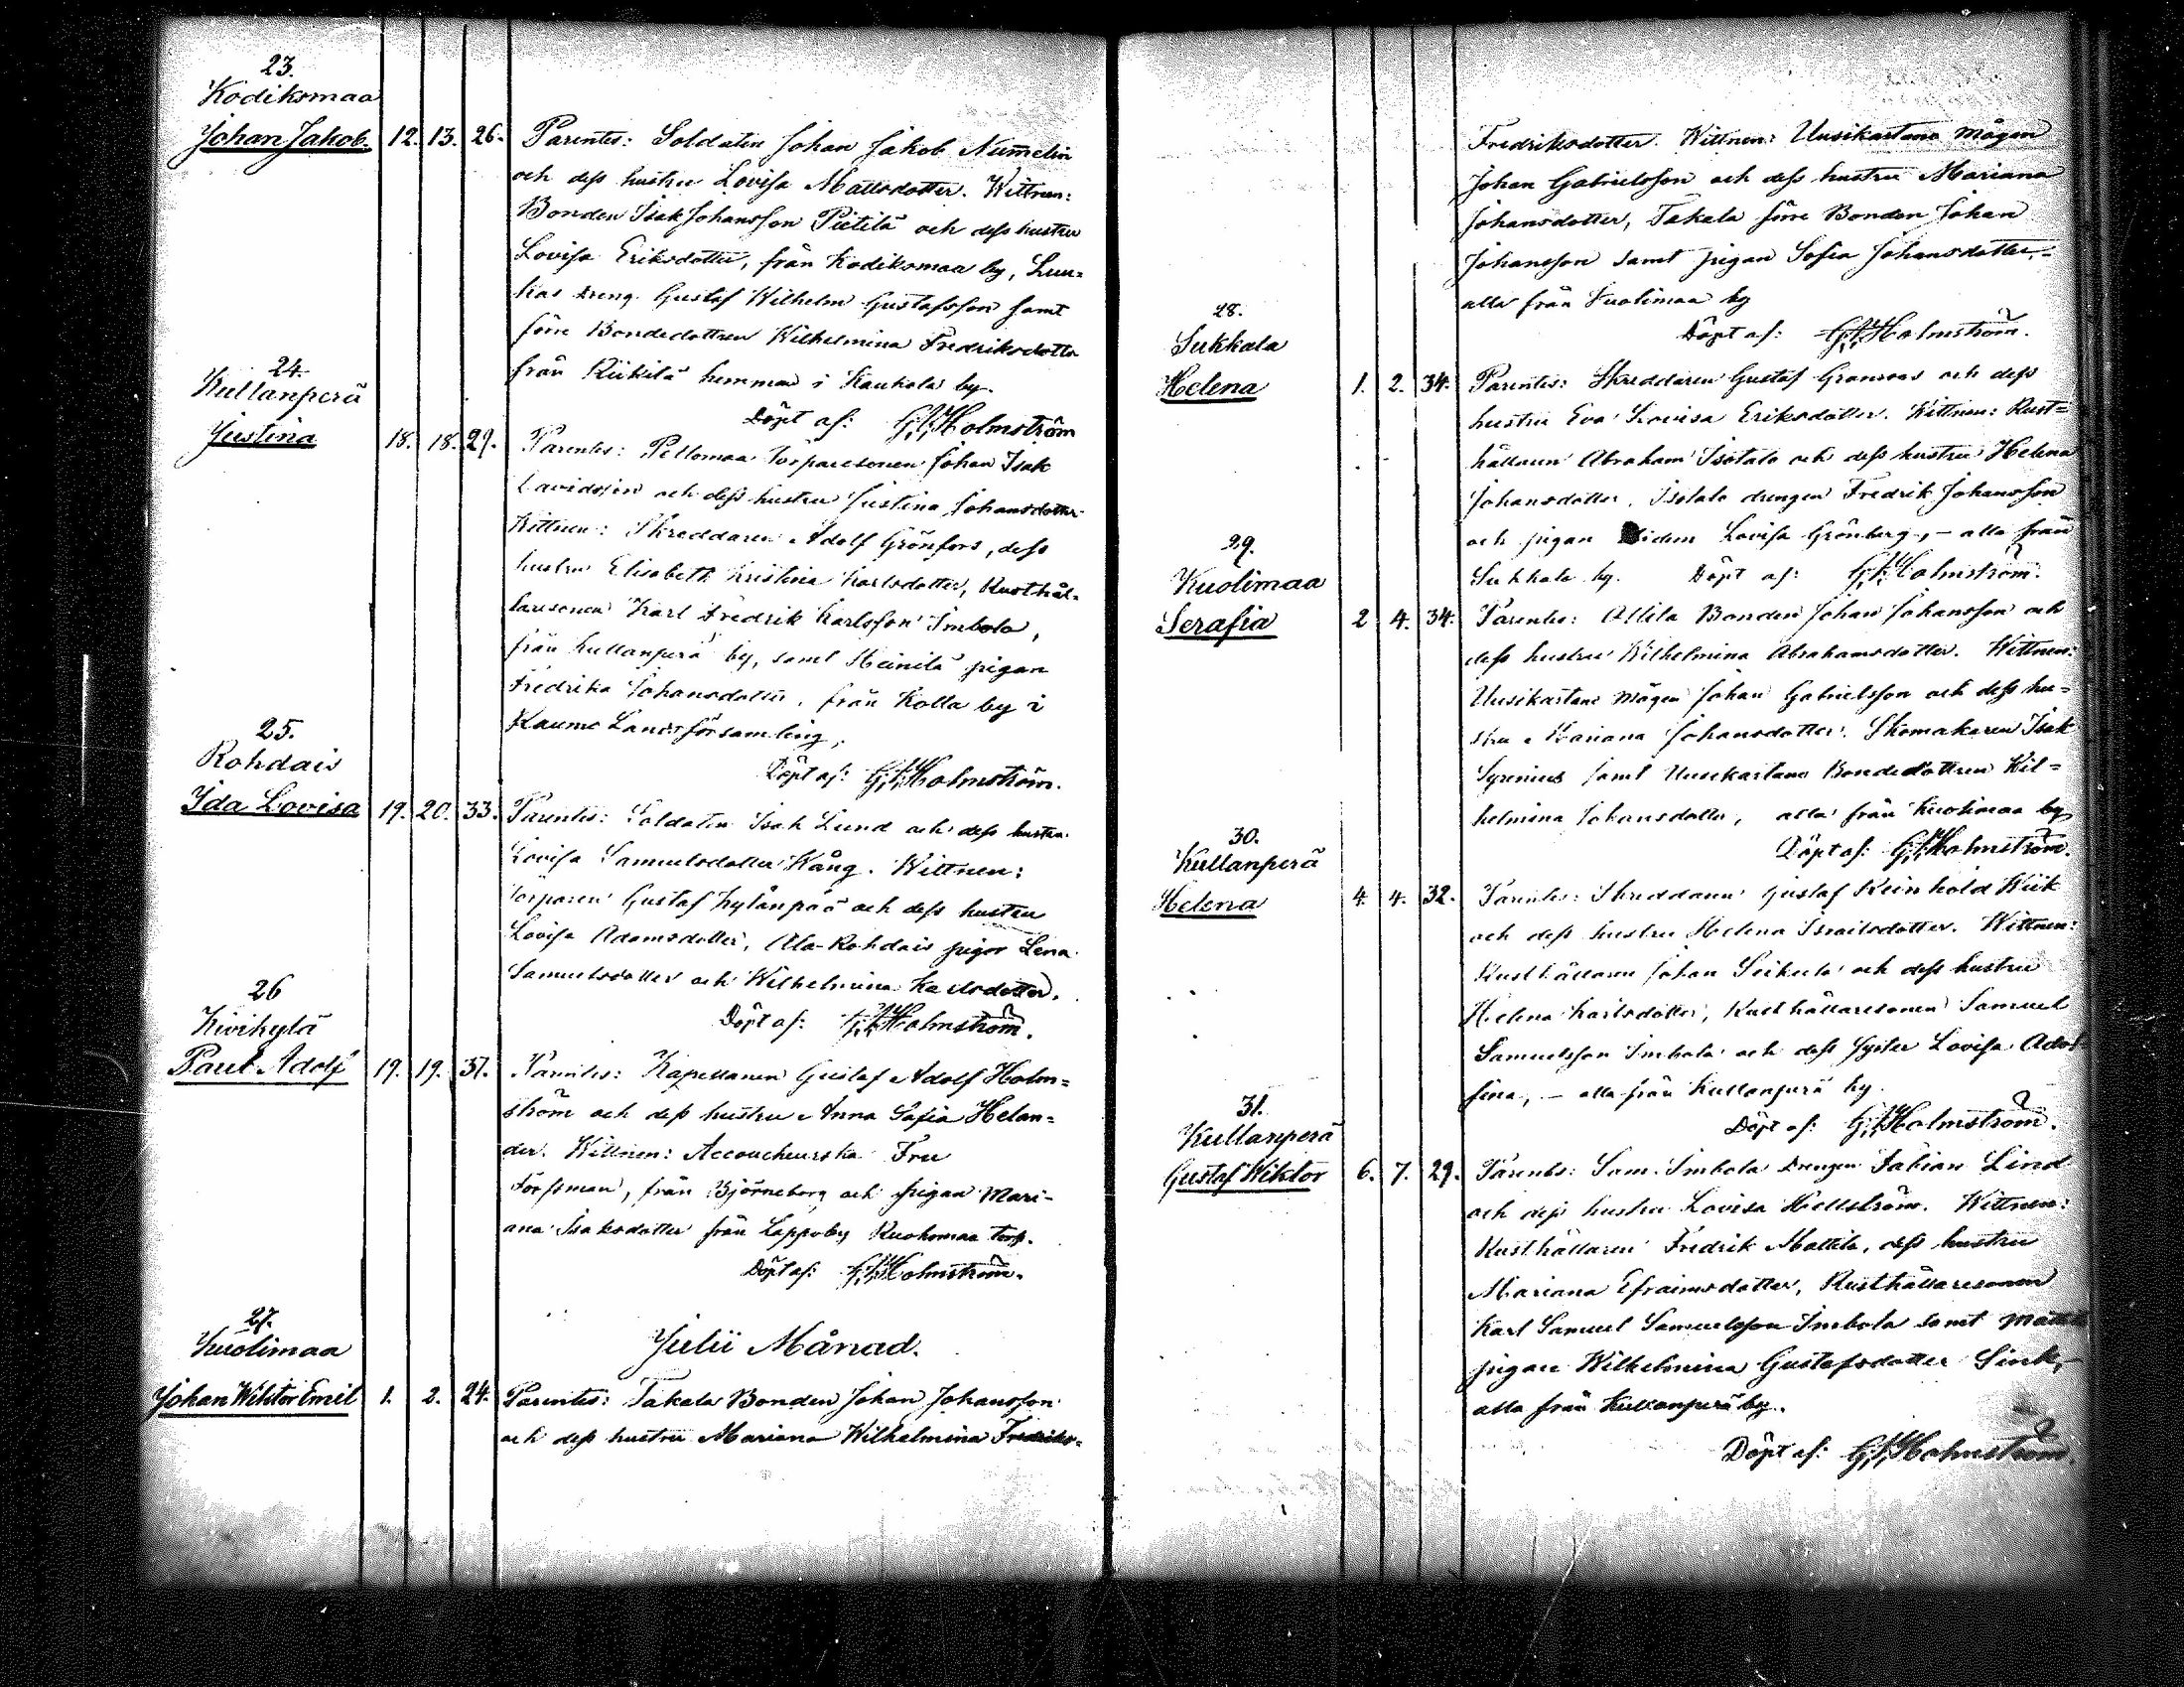 23.
Kodiksmaa
Johan Jakob. 12. 13. 26. Parentes: Soldaten Johan Jakob Numelin
och dess hustru Lovisa Mattsdotter. Wittnen:
Bonden Isak Johansson Pietilä och dess hustru
Lovisa Eriksdotter, från Kodiksmaa by, Luu=
kas dreng Gustaf Wilhelm Gustafsson samt
förre Bondedottren Wilhelmina Fredriksdotter
från Riikilä hemman i Kaukola by.
Döpt af: G.A.Holmström
24.
Kullanperä
Justina 18. 18. 29. Parentes: Peltomaa Torparesonen Johan Isak
Davidsson och dess hustru Justina Johansdotter
Wittnen: Skreddaren Adolf Grönfors, dess
hustru Elisabeth Kristina Karlsdotter, Rusthål-
laresonen Karl Fredrik Karlsson Imbola,
från Kullanperä by, samt Heinilä pigan
Fredrika Johansdotter, från Kolla by i
Raumo Landsförsamling,
Döpt af: G.A.Holmström.
25.
Rohdais
Ida Lovisa 19. 20. 33. Parentes: Soldaten Isak Lund och dess hustru
Lovisa Samuelsdotter Kång. Wittnen:
Torparen Gustaf Kylänpää och dess hustru
Lovisa Adamsdotter, Ala-Rohdais pigor Lena
Samuelsdotter och Wilhelmina Karlsdotter.
Döpt af: G.A.Holmström.
26
Kivikylä
Paul Adolf 19. 19. 37. Parentes: Kapellanen Gustaf Adolf Holm=
ström och dess hustru Anna Sofia Helan=
der. Wittnen: Accoucheurska Fru
Forssman, från Björneborg och pigan Mari-
ana Isaksdotter från Lappoby Ruohomaa torp.
Döpt af: G.A.Holmström.
Julii Månad.
27.
Kuolimaa
Johan Wiktor Emil 1. 2. 24. Parentes: Takala Bonden Johan Johansson
och dess hustru Mariana Wilhelmina Fredriks=
Fredriksdotter. Wittnen: Uusikartano mågen
Johan Gabrielsson och dess hustru Mariana
Johansdotter, Takala förre Bonden Johan
Johansson samt pigan Sofia Johansdotter,=
alla från Kuolimaa by
Döpt af: G.A.Holmström.
28.
Sukkala
Helena 1. 2. 34. Parentes: Skreddaren Gustaf Granroos och dess
hustru Eva Lovisa Eriksdotter. Wittnen: Rust=
hållaren Abraham Isotalo och dess hustru Helena
Johansdotter, Isotalo drengen Fredrik Johansson
och pigan Lovisa Grönberg, - alla från
Sukkala by. Döpt af: G.A.Holmström.
29.
Kuolimaa
Serafia 2 4. 34. Parentes: Attila Bonden Johan Johansson och
dess hustru Wilhelmina Abrahamsdotter. Wittnen:
Uusikartano mågen Johan Gabrielsson och dess hu=
stru Mariana Johansdotter. Skomakaren Isak
Syrenius samt Uusikartano Bondedottren Wil=
helmina Johansdotter, alla från Kuolimaa by
Döpt af: G.A.Holmström.
30.
Kullanperä
Helena 4. 4. 32. Parentes: Skreddaren Gustaf Reinhold Wiik
och dess hustru Helena Israilsdotter. Wittnen:
Rusthållaren Johan Seikula och dess hustru
Helena Karlsdotter, Rusthållaresonen Samuel
Samuelsson Imbola och dess syster Lovisa Adol
fina, - alla från Kullanperä by.
Döpt af: G.A.Holmström.
31.
Kullanperä
Gustaf Wiktor 6. 7. 29. Parentes: Sam. Imbola Drengen Fabian Lind
och dess hustru Lovisa Hellström. Wittnen:
Rusthållaren Fredrik Mattila, dess hustru
Mariana Efraimsdotter, Rusthållaresonen
Karl Samuel Samuelsson Imbola samt Mattila
pigan Wilhelmina Gustafsdotter Sink,-
alla från Kullanperä by.
Döpt af: G.A.Holmström.